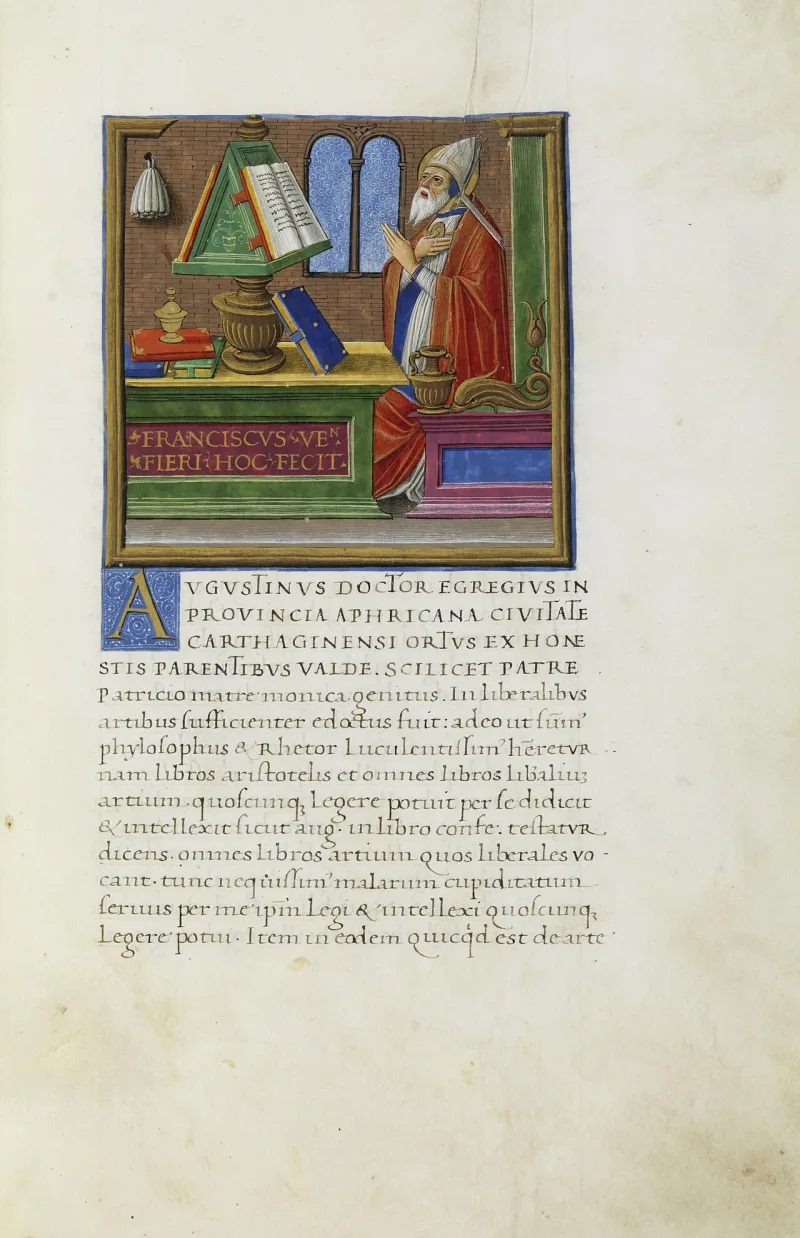 FRANCISCVS VEᴺ
FIERI HOC FECIT
AVGVSTINVS DOCTOR EGREGIVS IN
PROVINCIA APHRICANA CIVITATE
CARTHAGINENSI ORTVS EX HONE
STIS PARENTIBVS VALDE. SCILICET PATRE
Patricio matre monica genitus. In liberalibvs
artibus ſufficienter edoctus fuit: adeo ut ſum̄'
phyloſophus & Rhetor Luculentiſſim' hēretvR
nam libros ariſtotelis et omnes libros liƀaliuꝫ
artium. quoſcunqꝫ Legere potuit per ſe didicit
& intellexit ſicut aug. in libro confe. teſtatvR
dicens. omnes libros artium quos liberales vo -
cant. tunc neq̇uiſſim' malarum cupiditatum
ſeruus per me ip̄m Legi & intellexi quoſcunqꝫ
Legere potui. Item in eodem quicq̇d est de arte